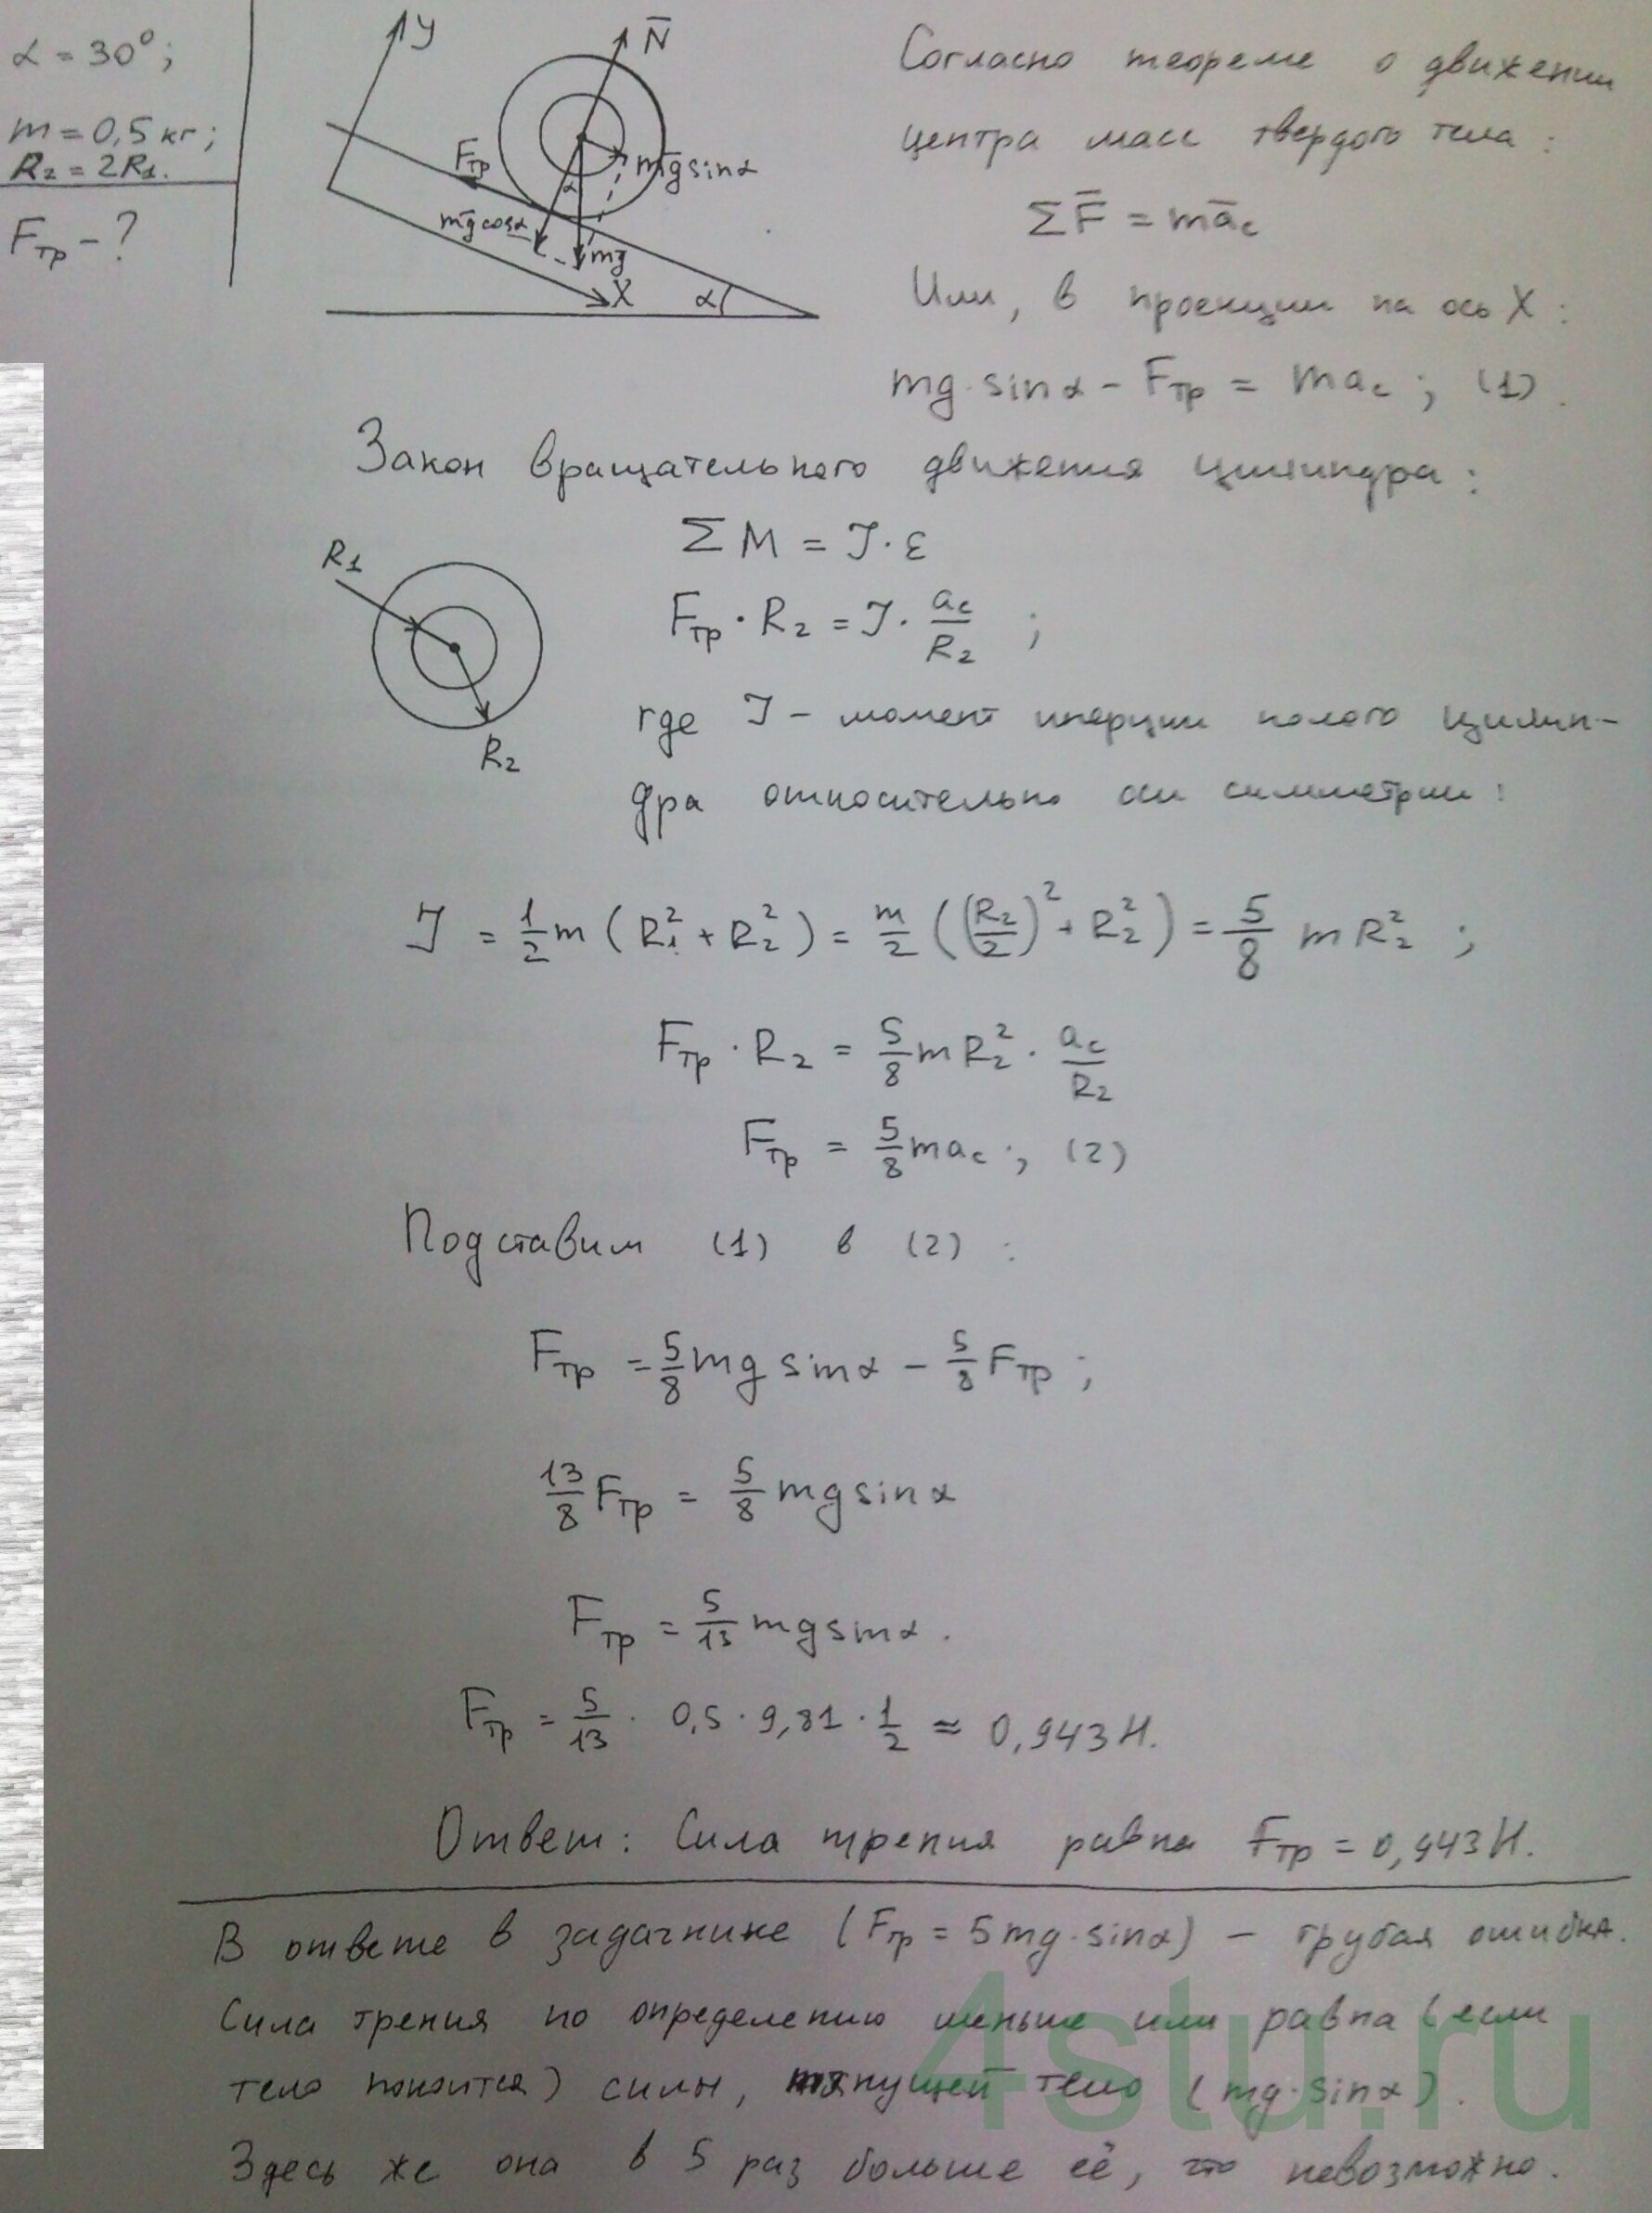 α = 30°;
m = 0,5 кг;
R₂ = 2R₁.
Fтр - ?
У
N̅
Fтр
m̅g sinα
m̅g cosα
α
mg
X
α
Согласно теореме о движении
центра масс твердого тела:
ΣF̅ = ma̅c
Или, в проекции на ось X:
mg·sinα - Fтр = mac; (1).
Закон вращательного движения цилиндра:
ΣM = J·ε
Fтр · R₂ = J · ac/R₂ ;
R₁
R₂
где J - момент инерции полого цилин-
дра относительно оси симметрии:
J = 1/2 m (R₁² + R₂²) = m/2 ((R₂/2)² + R₂²) = 5/8 mR₂² ;
Fтр · R₂ = 5/8 mR₂² · ac/R₂
Fтр = 5/8 mac; (2)
Подставим (1) в (2):
Fтр = 5/8 mg sinα - 5/8 Fтр ;
13/8 Fтр = 5/8 mg sinα
Fтр = 5/13 mg sinα.
Fтр = 5/13 · 0,5 · 9,81 · 1/2 ≈ 0,943 Н.
Ответ: Сила трения равна Fтр = 0,943 Н.
В ответе в задачнике (Fтр = 5mg·sinα) - грубая ошибка.
Сила трения по определению меньше или равна (если
тело покоится) силы, тянущей тело (mg·sinα).
Здесь же она в 5 раз больше её, что невозможно.
4stu.ru